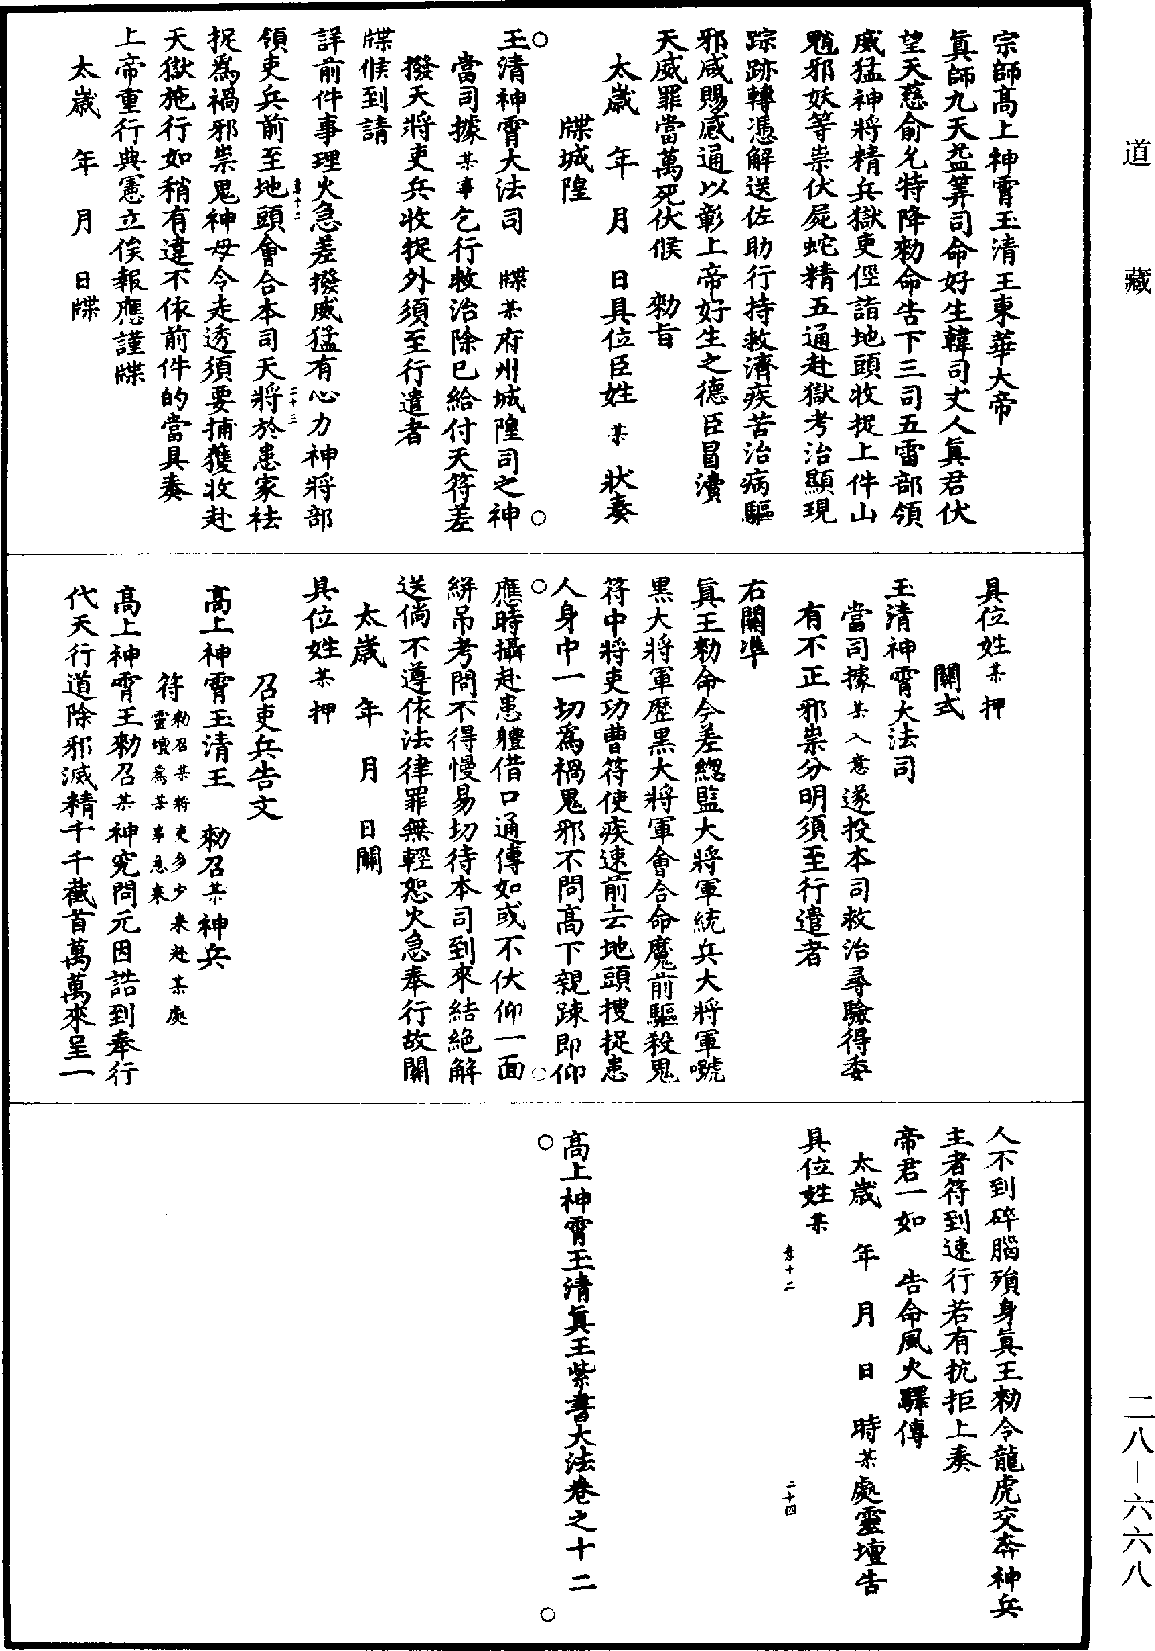 道藏
宗師高上神霄玉清王東華大帝
真師九天益筭司命好生韓司丈人真君伏
望天慈俞允特降勑命告下三司五雷部領
威猛神將精兵獄吏徑詣地頭收捉上件山
魈邪妖等祟伏屍蛇精五通赴獄考治顯現
踪跡轉憑解送佐助行持救濟疾苦治病驅
邪咸賜感通以彰上帝好生之德臣冒瀆
天威罪當萬死伏候 勑旨
太歲 年 月 日具位臣姓某狀奏
牒城隍
玉清神霄大法司 牒某府州城隍司之神
當司據某事乞行救治除已給付天符差
撥天將吏兵收捉外須至行遣者
牒候到請
詳前件事理火急差撥威猛有心力神將部
卷十二 二十三
領吏兵前至地頭會合本司天將於患家祛
捉為禍邪祟鬼神母令走透須要捕獲收赴
天獄施行如稍有違不依前件的當具奏
上帝重行典憲立俟報應謹牒
太歲 年 月 日牒
具位姓某押
關式
玉清神霄大法司
當司據某入意遂投本司救治尋驗得委
有不正邪祟分明須至行遣者
右關準
真王勑命今差緫監大將軍統兵大將軍號
黑大將軍歷黑大將軍會合命魔前驅殺鬼
符中將吏功曹符使疾速前去地頭搜捉患
人身中一切為禍鬼邪不問高下親踈即仰
應時攝赴患體借口通傳如或不伏仰一面
絣吊考問不得慢易切待本司到來結絕解
送倘不遵依法律罪無輕恕火急奉行故關
太歲 年 月 日關
具位姓某押
召吏兵告文
高上神霄玉清王 勑召某神兵
符勑召某將吏多少來赴某處
靈壇為某事急來
高上神霄王勑召某神究問元因誥到奉行
代天行道除邪滅精千千截首萬萬來呈一
人不到碎腦殞身真王勑令龍虎交奔神兵
主者符到速行若有抗拒上奏
帝君一如 告命風火驛傳
太歲 年 月 日 時某處靈壇告
具位姓某
卷十二 二十四
高上神霄玉清真王紫書大法卷之十二
二八—六六八